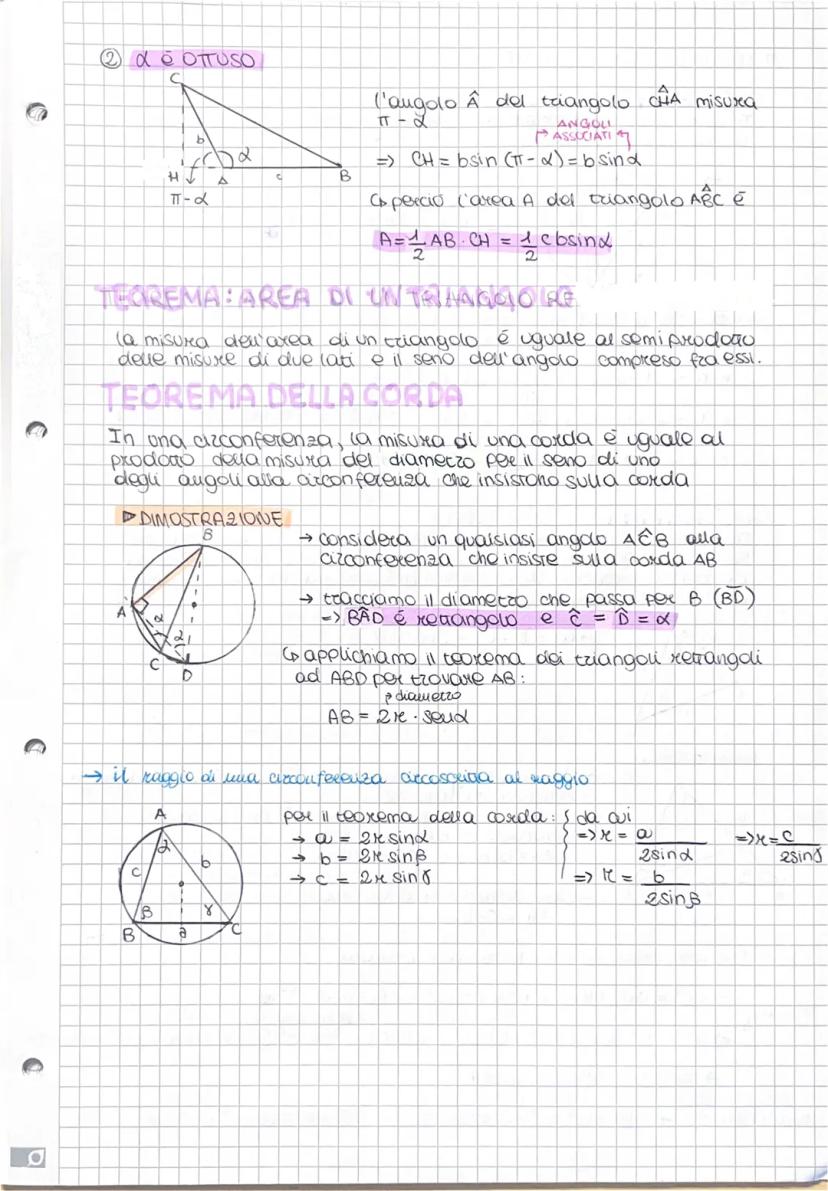 ② α é OTTUSO
C
b
α
H
A
c
B
π-α
l'angolo Â del triangolo CĤA misura
π - α
ANGOLI
ASSOCIATI
=> CH = b sin (π-α) = b sinα
↳ perciò l'area A del triangolo AB̂C é
A = 1/2 AB · CH = 1/2 c b sinα
TEOREMA: AREA DI UN TRIANGOLO RE
la misura dell'area di un triangolo é uguale al semiprodotto
delle misure di due lati e il seno dell'angolo compreso fra essi.
TEOREMA DELLA CORDA
In una circonferenza, la misura di una corda é uguale al
prodotto della misura del diametro per il seno di uno
degli angoli alla circonferenza che insistono sulla corda
▷ DIMOSTRAZIONE
B
A
α
α
C
D
→ considera un qualsiasi angolo AĈB alla
circonferenza che insiste sulla corda AB
→ tracciamo il diametro che passa per B (BD)
=> BÂD é rettangolo e Ĉ = D̂ = α
↳ applichiamo il teorema dei triangoli rettangoli
ad ABD per trovare AB:
diametro
AB = 2r · senα
→ il raggio di una circonferenza circoscritta al raggio
A
α
c
b
β
γ
B
a
C
per il teorema della corda:
→ a = 2r sinα
→ b = 2r sinβ
→ c = 2r sinγ
da cui
=> r = a / 2sinα
=> r = b / 2sinβ
=> r = c / 2sinγ